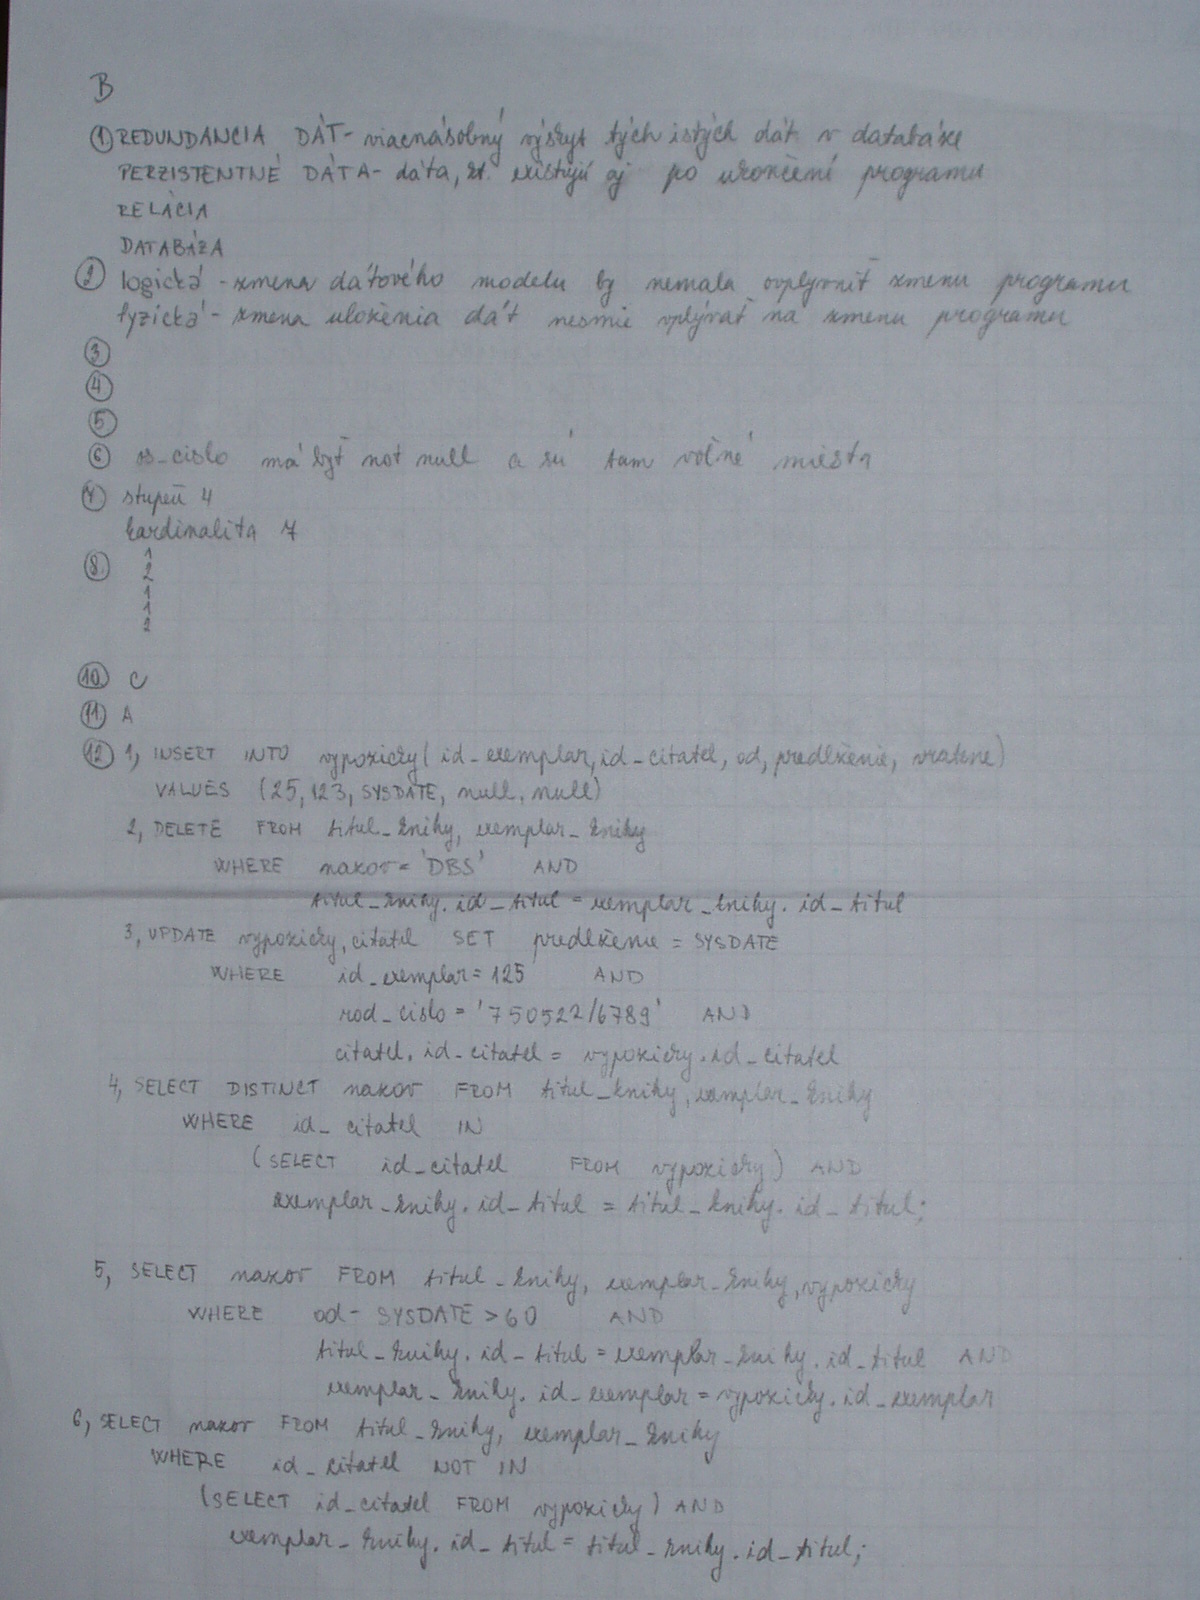 B
1 REDUNDANCIA DÁT - viacnásobný výskyt tých istých dát v databáze
PERZISTENTNÉ DÁTA - dáta, kt. existujú aj po ukončení programu
RELÁCIA
DATABÁZA
2 logická - zmena dátového modelu by nemala ovplyvniť zmenu programu
fyzická - zmena uloženia dát nesmie vplývať na zmenu programu
3
4
5
6 os_cislo má byť not null a sú tam voľné miesta
7 stupeň 4
kardinalita 7
8. 1
2
1
1
2
10. C
11. A
12 1, INSERT INTO vypozicky (id_exemplar, id_citatel, od, predlženie, vratene)
VALUES (25, 123, SYSDATE, null, null)
2, DELETE FROM titul_knihy, exemplar_knihy
WHERE nazov = 'DBS' AND
titul_knihy. id_titul = exemplar_knihy. id_titul
3, UPDATE vypozicky, citatel SET predlženie = SYSDATE
WHERE id_exemplar = 125 AND
rod_cislo = '750522/6789' AND
citatel. id_citatel = vypozicky. id_citatel
4, SELECT DISTINCT nazov FROM titul_knihy, exemplar_knihy
WHERE id_citatel IN
(SELECT id_citatel FROM vypozicky) AND
exemplar_knihy. id_titul = titul_knihy. id_titul;
5, SELECT nazov FROM titul_knihy, exemplar_knihy, vypozicky
WHERE od - SYSDATE > 60 AND
titul_knihy. id_titul = exemplar_knihy. id_titul AND
exemplar_knihy. id_exemplar = vypozicky. id_exemplar
6, SELECT nazov FROM titul_knihy, exemplar_knihy
WHERE id_citatel NOT IN
(SELECT id_citatel FROM vypozicky) AND
exemplar_knihy. id_titul = titul_knihy. id_titul;